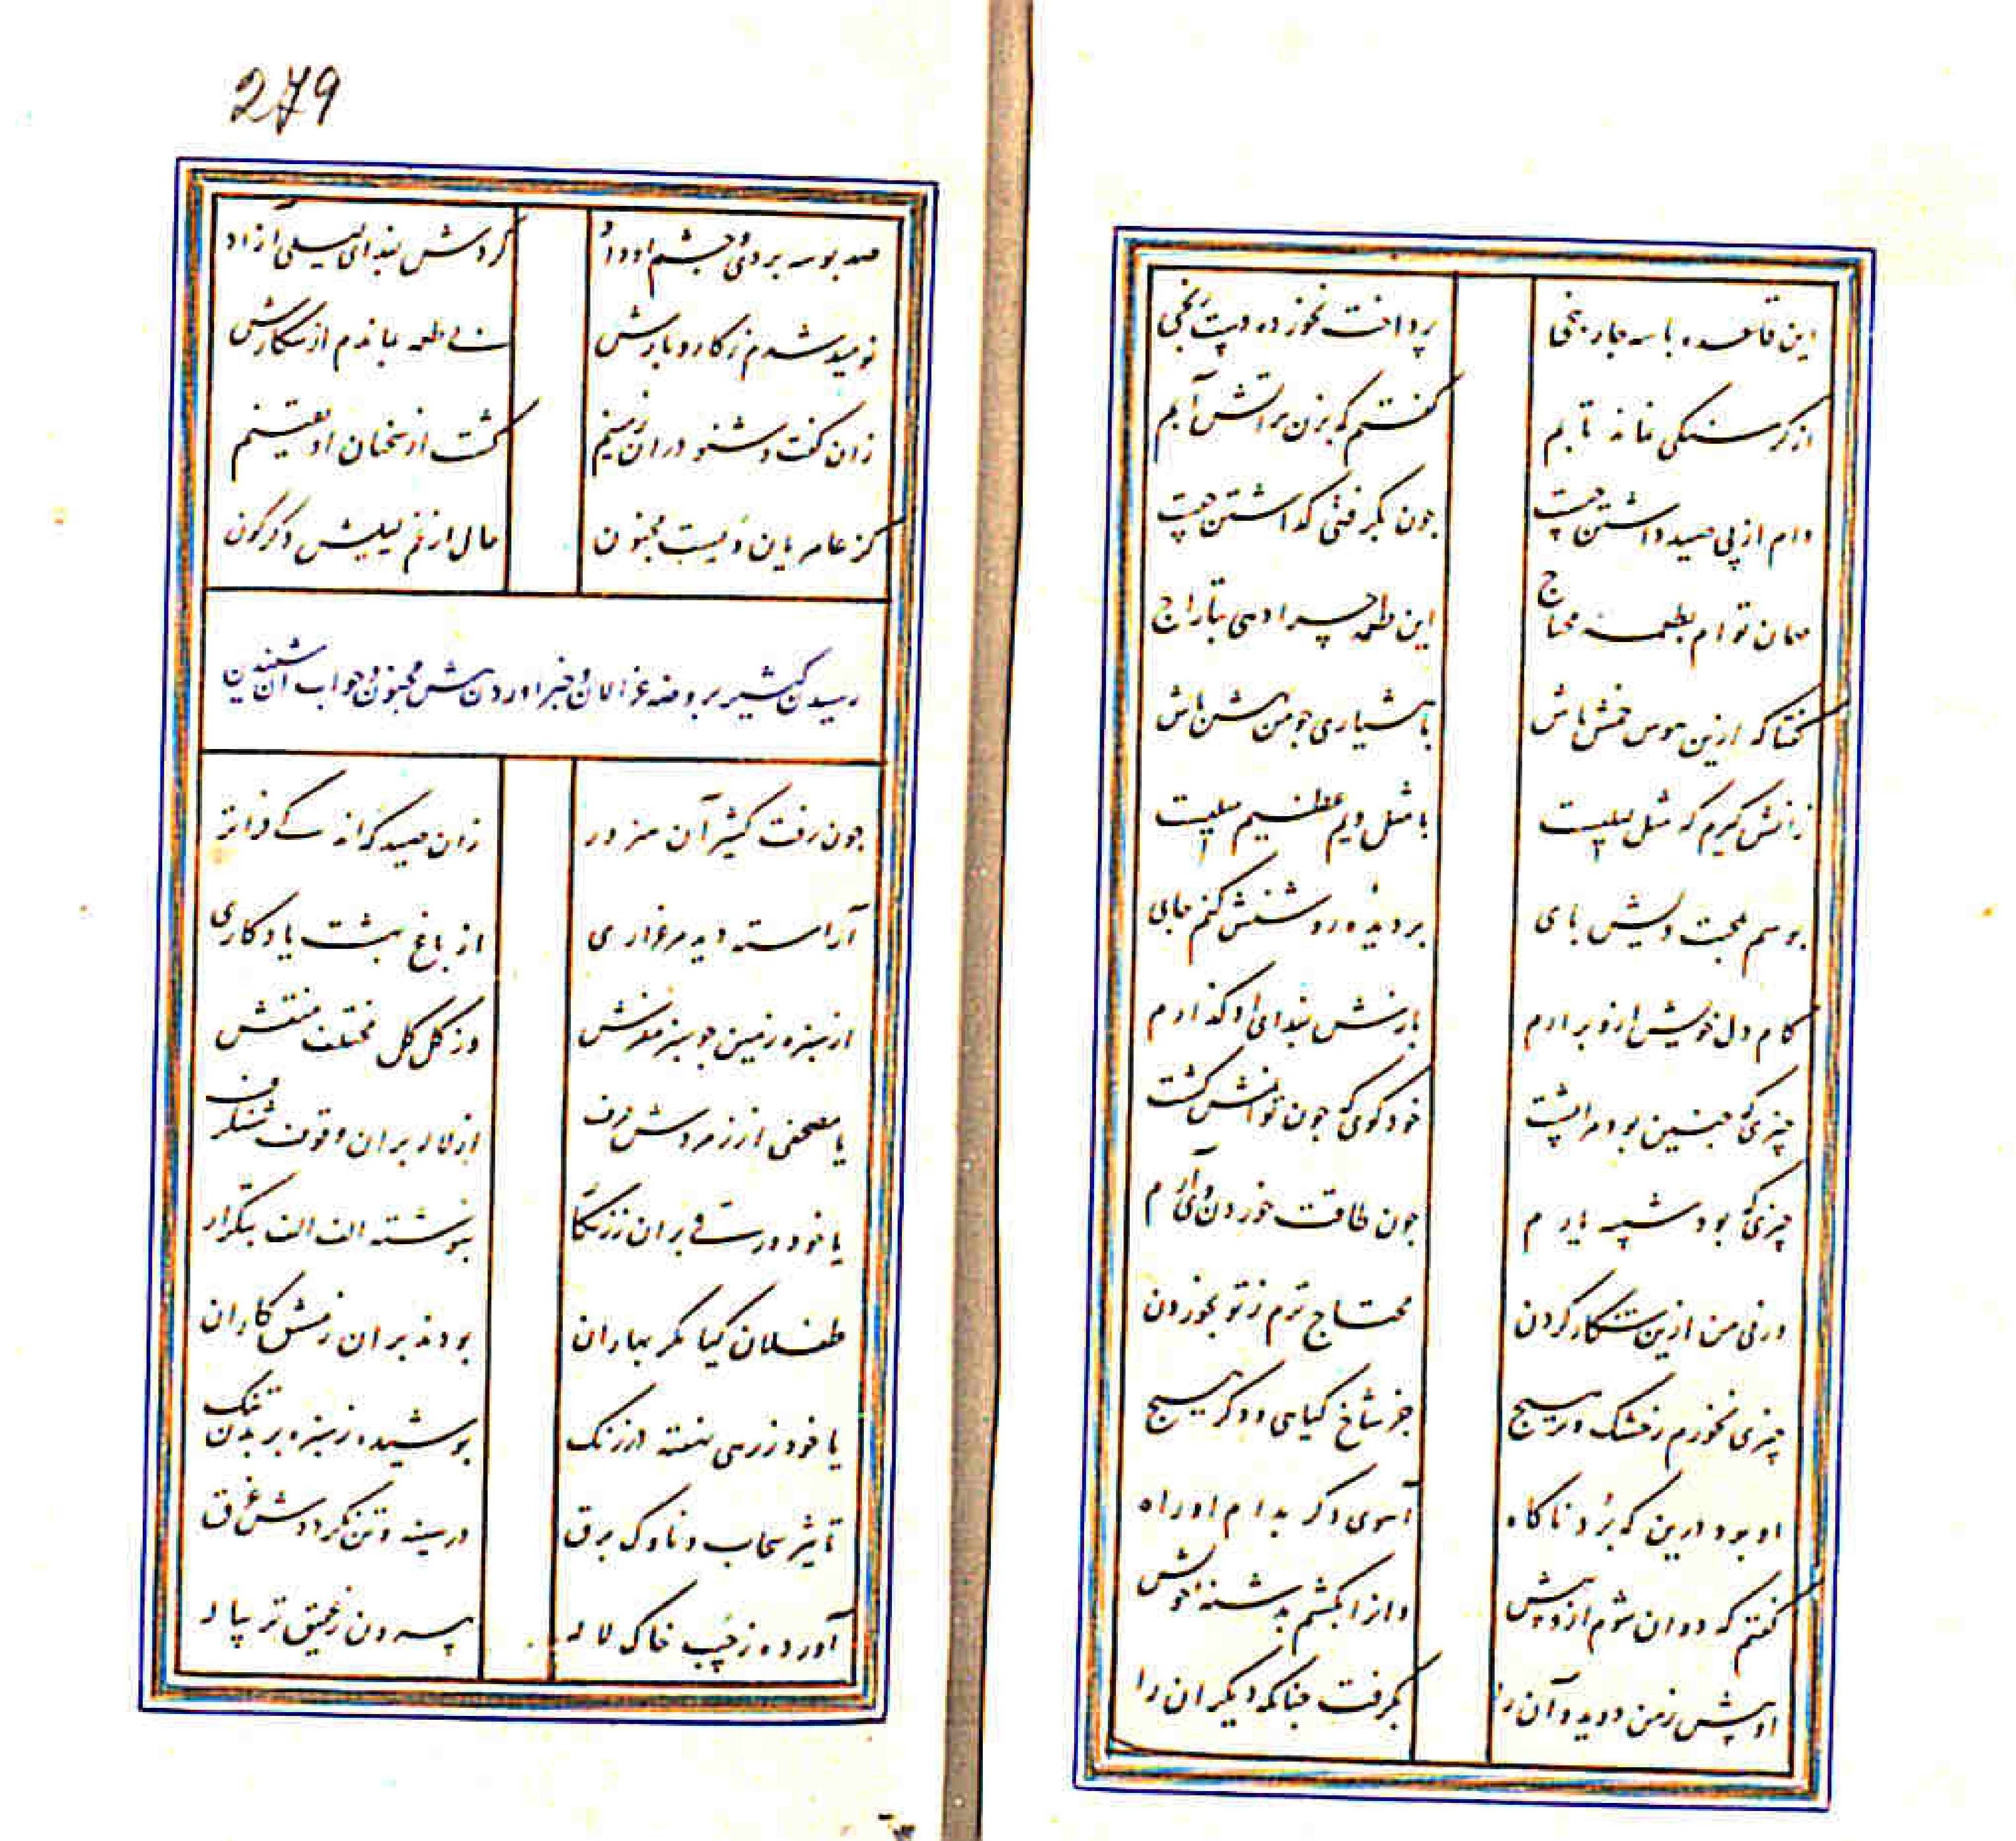 این قاعده با سه جار بختی
پرداخت نخورده دیت بختی
از گرسنگی نماند تابم
گفتم که بزن بر آتش آبم
دام از پی صید داشتن چیست
چون بگرفتی گذاشتن چیست
مهمان توام بطعمه محتاج
این طعمه چرا دهی بتاراج
گفتا که ازین هوس خمش باش
با هشیاری چو من بهش باش
زانش گیرم که مثل لیلیست
با مثل ویم عظیم میلیست
بوسم بمحبت دلیش پای
بر دیده روشنش کنم جای
کام دل خویش ازو برارم
بازش بفدای او گذارم
چیزی که چنین بود مرا پشت
خود گوی که چون توانمش کشت
چیزی که بود شبیه یارم
چون طاقت خوردن وی آرم
ورنی من ازین شکار کردن
محتاج ترم ز تو بخوردن
چیزی نخورم ز خشک و تر هیچ
جز شاخ گیاهی و دگر هیچ
او بود درین که برد ناگاه
آهوی دگر بدام او راه
گفتم که دوان شوم ازو پیش
وانرا بکشم بدشنه خویش
او پیش ز من دوید و آن را
بگرفت چنانکه دیگران را
279
صد بوسه بروی و چشم او داد
کردش بفدای لیلی آزاد
نومید شدم ز کار و بارش
بی طعمه بماندم از شکارش
زان گفت و شنو دران زمینم
گشت از سخنان او یقینم
کز عامریان ویست مجنون
حال از غم لیلیش دگرگون
رسیدن کثیر بروضه غزالان و خبر اوردن پیش مجنون و جواب آن شنیدن
چون رفت کثیر آن
زان صید که اندکی
آراسته دید مرغزاری
از باغ بهشت یادگاری
از سبزه زمین چو سبز مفرش
وز گل گل مختلف منقش
یا مصحفی از زمردش حرف
از لاله بران وقوف شنگرف
یا خود ورقی بران ز زنگار
بنوشته الف الف بتکرار
طفلان گیا مگر بهاران
بودند بران ز مشق کاران
یا خود زرهی نهفته در زنگ
پوشیده ز سبزه بر بدن تنگ
تا تیر سحاب و ناوک برق
در سینه و تن نگرددش غرق
آورده ز جیب خاک لاله
بیرون ز عقیق تر پیاله